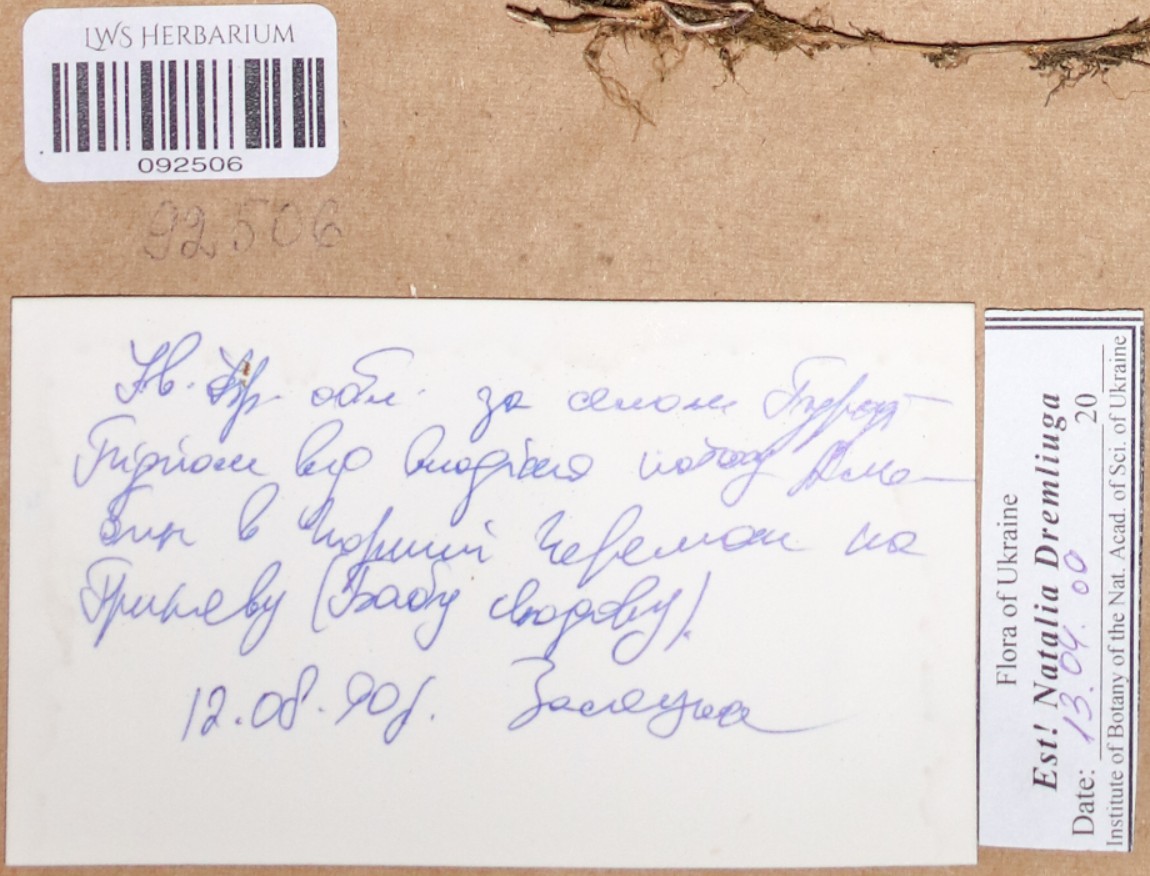 LWS HERBARIUM
092506
92506
Ів. Фр. обл. за селом
від впадіння потоку
в Чорний Черемош на
Гриняву (Бабу Людову).
12.08.90р.
Flora of Ukraine
Est! Natalia Dremliuga
Date: 13.04.00 20
Institute of Botany of the Nat. Acad. of Sci. of Ukraine